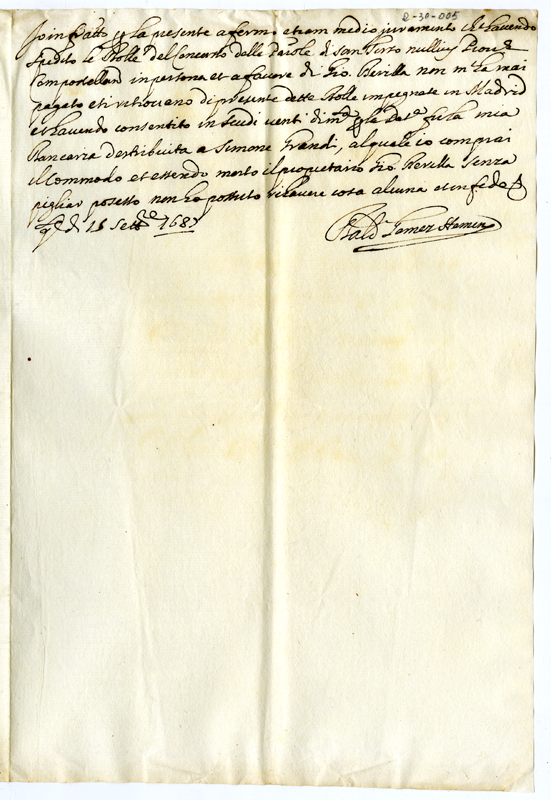 2-30-005
Io infra̅tto p la presente affermo etiam medio juramento che havendo
spedito le Bolle del Canonicato delle di San Pietro nullius
Compostellan in persona et a favore di Gio. Revilla non m ha mai
pagato et si ritrovano di presente dette Bolle impegnate in Madrid
et havendo consentito in scudi venti di mta p le fu la mia
Bancaria destribuita a Simone Grandi, al quale io comprai
il Commodo et essendo morto il proprietario Gio. Revilla senza
pigliar possesso non ho possuto rihavere cosa alcuna et in fede
q di 15 Settre 1687
Bald. Gomez Homen